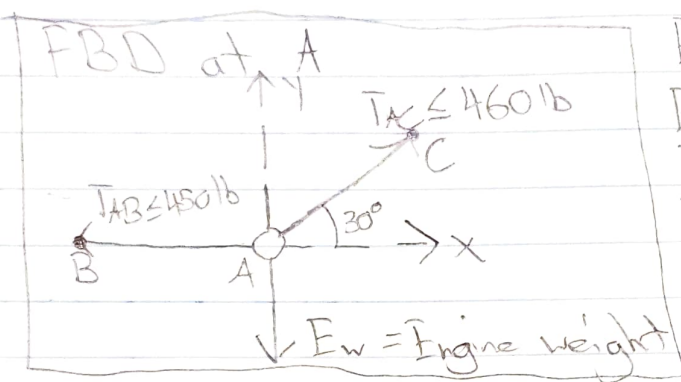 FBD at A
Y
T_AC ≤ 460 lb
C
T_AB ≤ 450 lb
30°
X
B
A
E_w = Engine weight